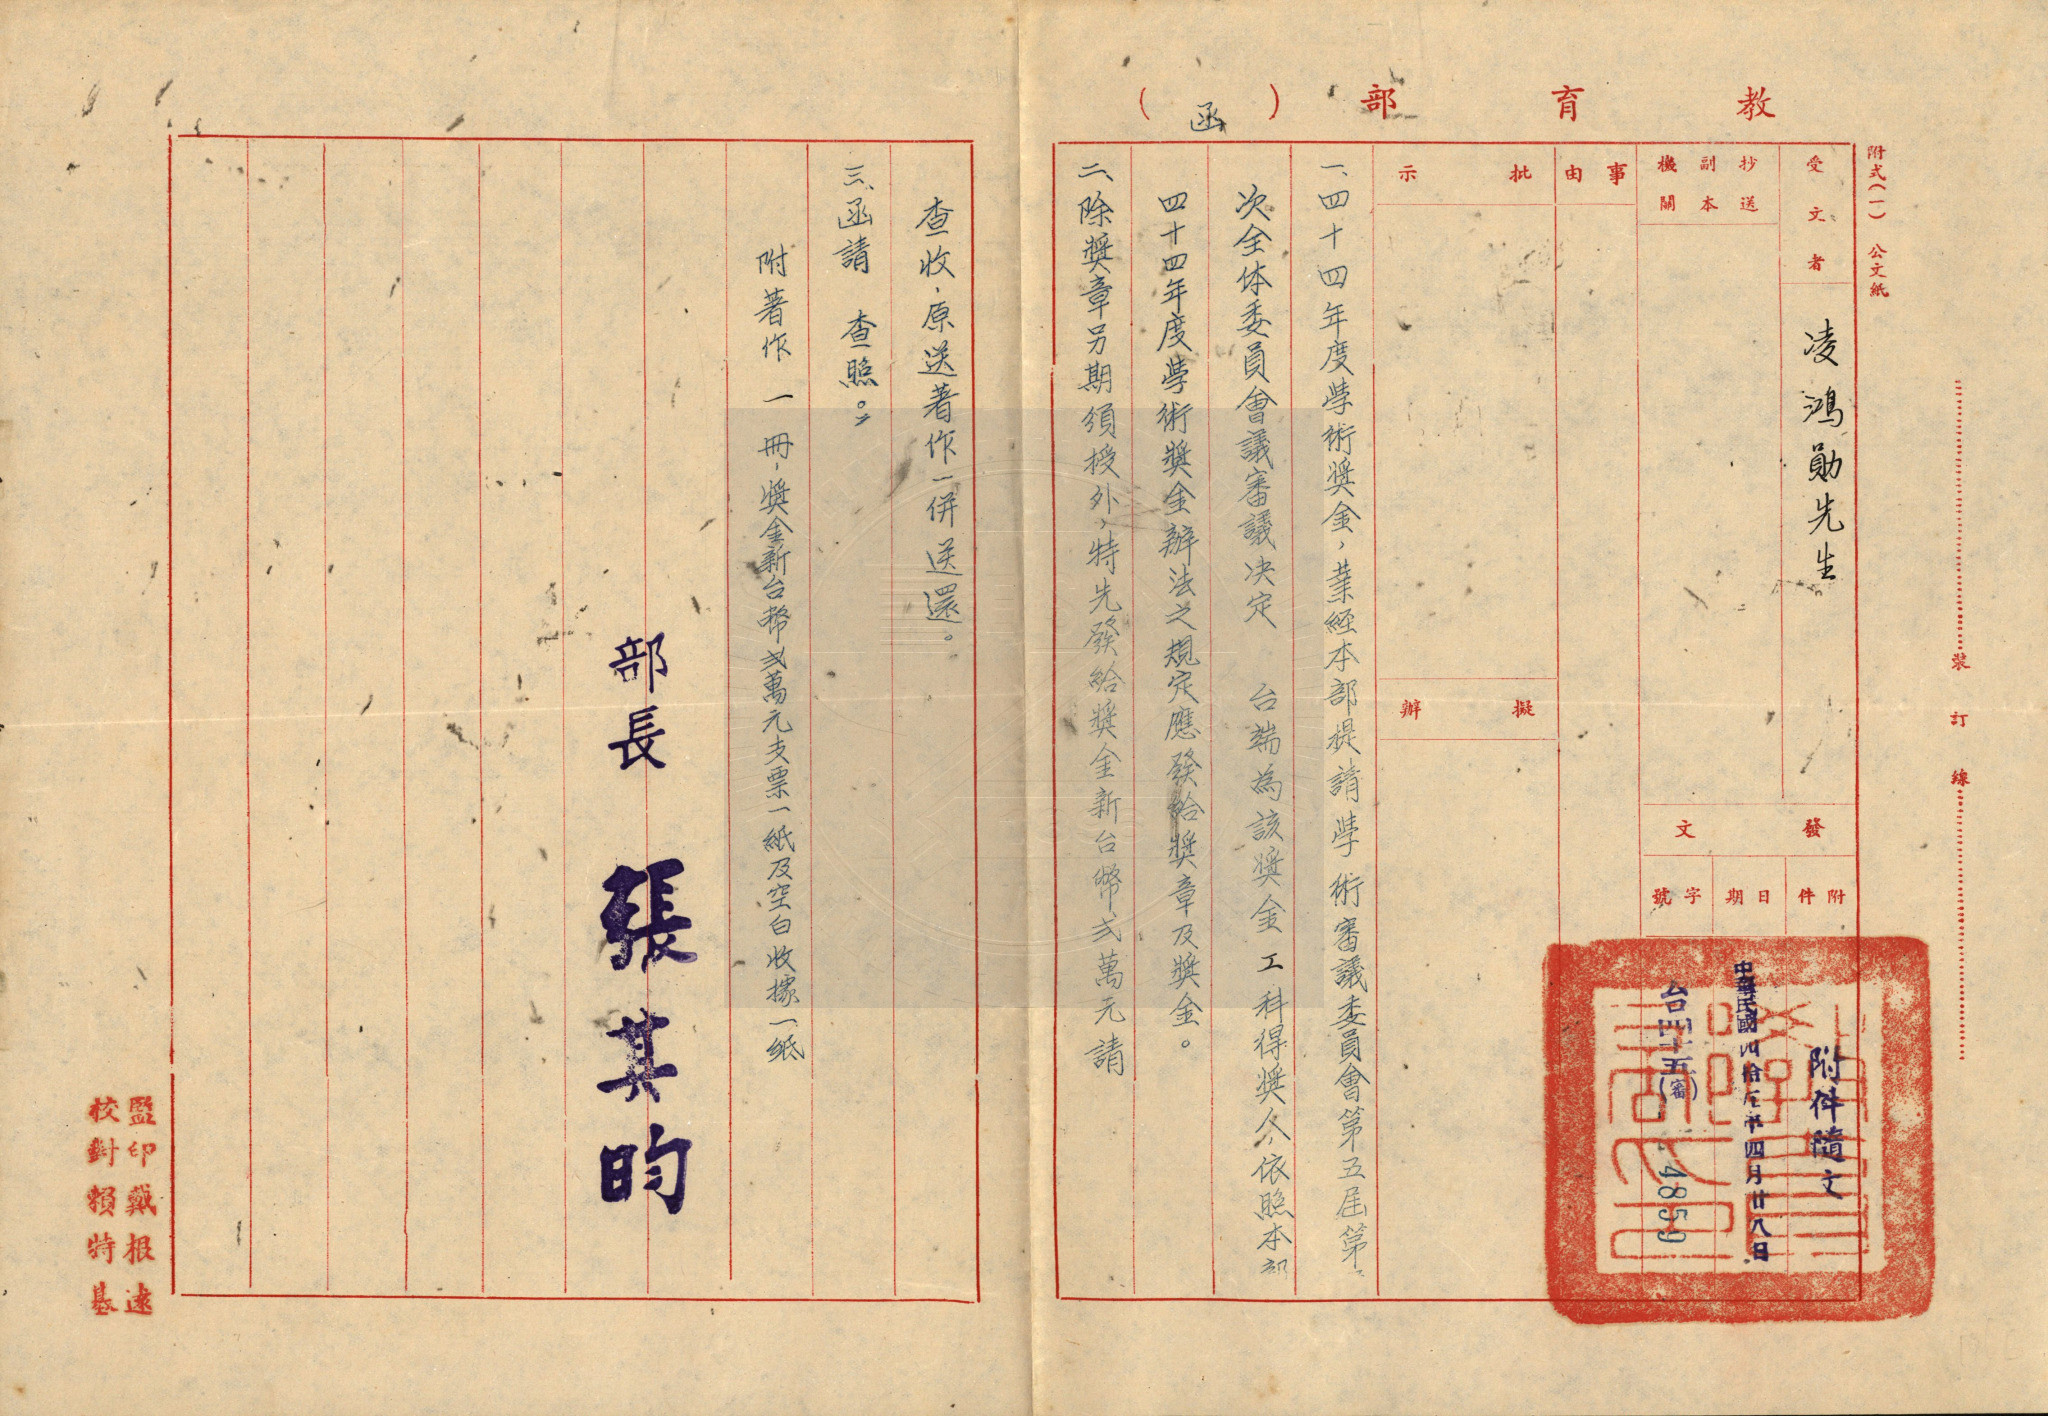 教育部(函)
附式(一) 公文紙
受文者
凌鴻勛先生
抄送副本機關
事由
批示
擬辦
發文
附件
日期
字號
附件隨文
中華民國四拾五年四月廿八日
台四十五(審)
4859
一、四十四年度學術獎金,業經本部提請學術審議委員會第五屆第
次全体委員會議審議決定 台端為該獎金工科得獎人,依照本部
四十四年度學術獎金辦法之規定應發給獎章及獎金。
二、除獎章另期頒授外,特先發給獎金新台幣弍萬元請
查收,原送著作一併送還。
三、函請 查照。
附著作一冊,獎金新台幣弍萬元支票一紙及空白收據一紙
部長 張其昀
監印戴根逮
校對賴特基
裝訂線